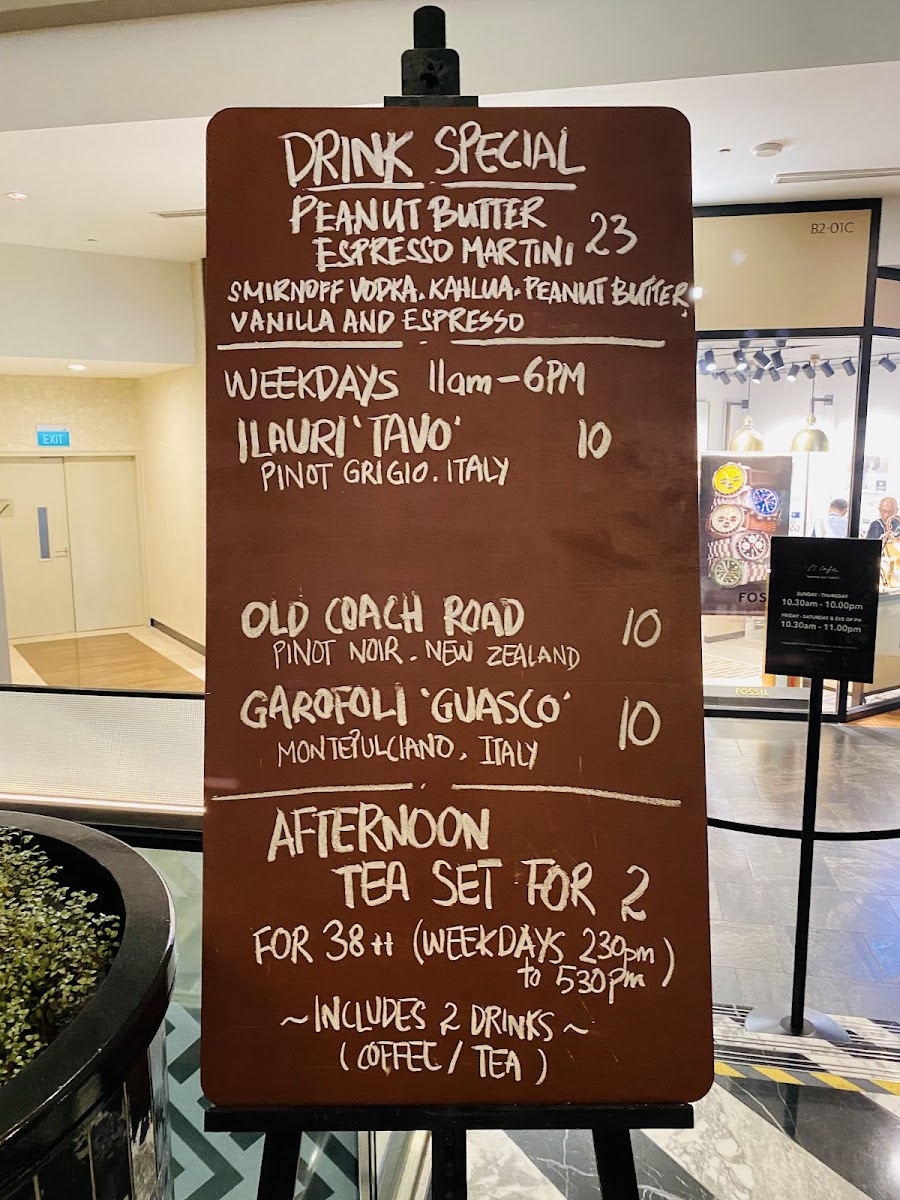 DRINK SPECIAL
PEANUT BUTTER
ESPRESSO MARTINI 23
SMIRNOFF VODKA. KAHLUA. PEANUT BUTTER,
VANILLA AND ESPRESSO
WEEKDAYS 11am - 6PM
ILAURI 'TAVO' 10
PINOT GRIGIO. ITALY
OLD COACH ROAD 10
PINOT NOIR. NEW ZEALAND
GAROFOLI 'GUASCO' 10
MONTEPULCIANO, ITALY
AFTERNOON
TEA SET FOR 2
FOR 38++ (WEEKDAYS 230pm
to 530pm)
~ INCLUDES 2 DRINKS ~
(COFFEE / TEA)
B2-01C
EXIT
FOSSIL
SUNDAY - THURSDAY
10.30am - 10.00pm
FRIDAY - SATURDAY & EVE OF PH
10.30am - 11.00pm